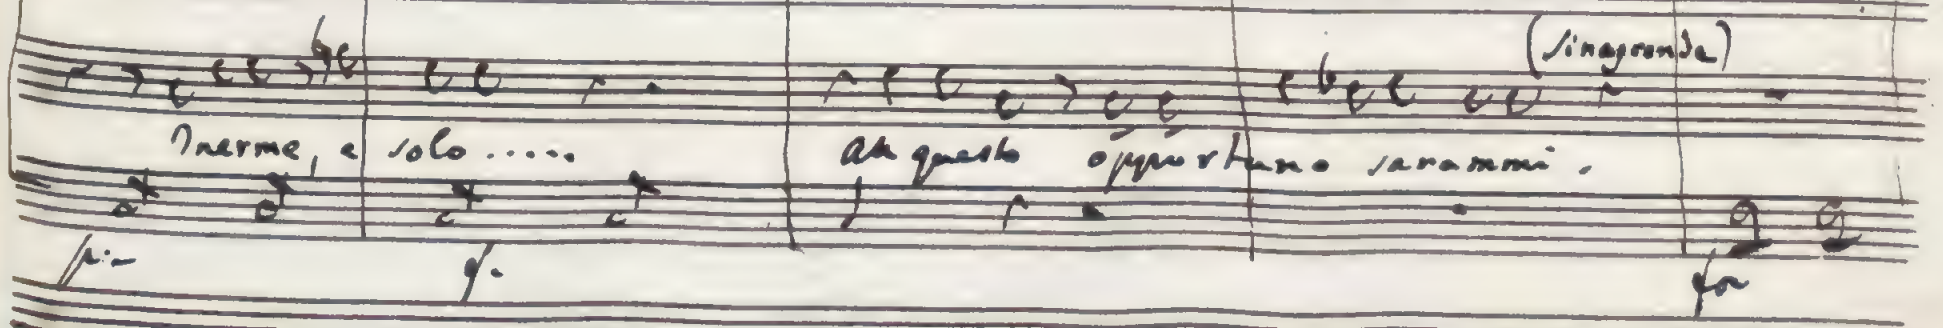 (sinagronda)
Inerme, e solo.....
Ah questo opportuno sarammi.
p:
f.
for